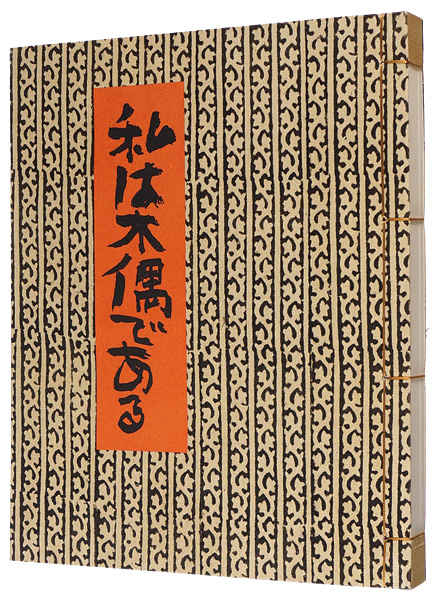 私は木偶である